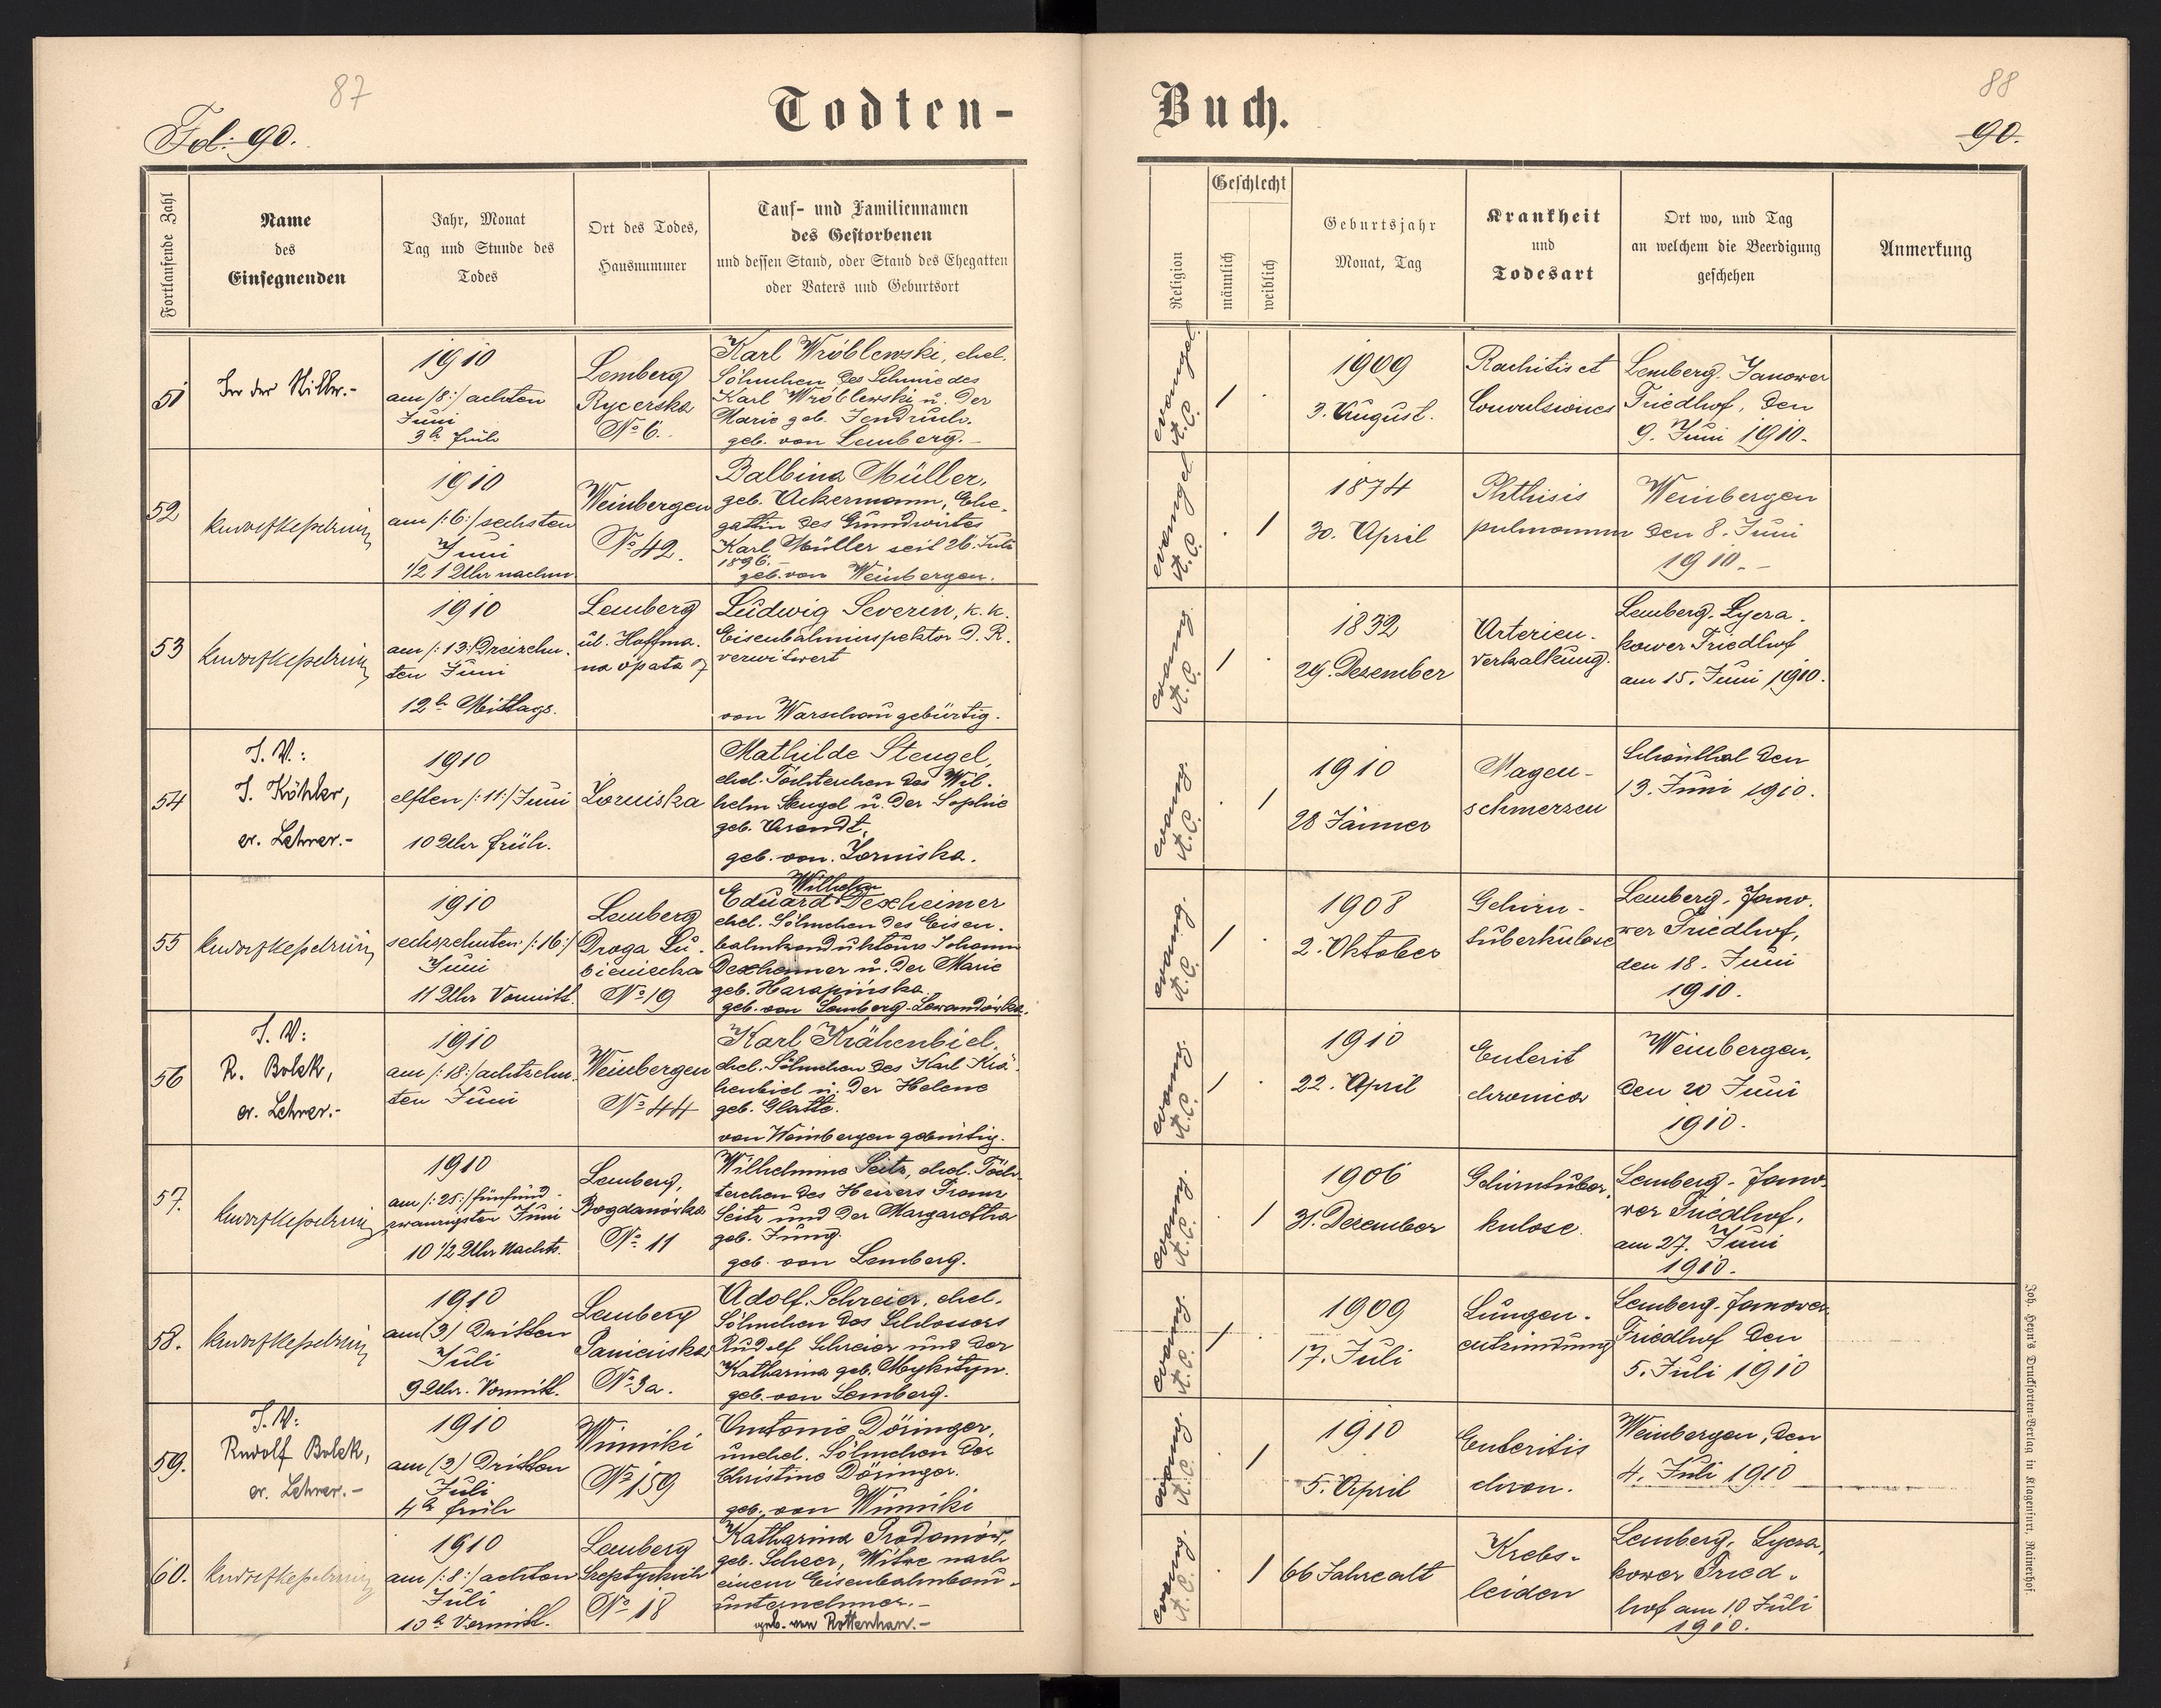 87
Fol: 90.
Todten-
Fortlaufende Zahl
Name
des
Einsegnenden
Jahr, Monat
Tag und Stunde des
Todes
Ort des Todes,
Hausnummer
Tauf- und Familiennamen
des Gestorbenen
und dessen Stand, oder Stand des Ehegatten
oder Vaters und Geburtsort
51
1910
am /8:/ achten
Juni
3h früh
Lemberg
Rycerska
No 6.
Karl Wróblewski, ehel.
Söhnchen des Schmiedes
Karl Wróblewski u. der
Marie geb. Jendruch.
geb. von Lemberg.-
52
1910
am /:6:/ sechsten
Juni
1/2 1 Uhr nachm.
Weinbergen
No 42.
Balbina Müller,
geb. Ackermann, Ehe-
gattin des Grundwirtes
Karl Müller seit 26.
1896.
geb. von Weinbergen.
53
1910
am /:13:/ Dreizehn-
ten Juni
12h Mittags.
Lemberg
ul. Hoffma-
na opata 7
Ludwig Severin, k. k.
Eisenbahninspektor d. R.
verwitwert
von Warschau gebürtig.
54
I. V.:
J. Köhler,
ev. Lehrer.-
1910
elften /:11:/ Juni
10 Uhr früh.
Zorniska
Mathilde Stengel,
ehel. Töchterchen des Wil-
helm Stengel u. der Sophie
geb. Arendt.
geb. von Zorniska.
55
1910
sechszehnten /:16:/
Juni
11 Uhr Vormitt.
Lemberg
Droga Lu-
bieniecka
No 19
Wilhelm
Eduard Dexheimer
ehel. Söhnchen des Eisen-
bahnkondukteurs Johann
Dexheimer u. der Marie
geb. Harapińska.
geb. von Lemberg-Lewandówka.
56
I. V:
R. Bolek,
ev. Lehrer.-
1910
am /:18:/ achtzehn-
ten Juni
Weinbergen
No 44
Karl Krähenbiel,
ehel. Söhnchen des Karl Krä-
henbiel u. der Helene
geb. Glatte.
von Weinbergen gebürtig.
57.
1910
am /:25:/ fünfund-
zwanzigsten Juni
10 1/2 Uhr Nachts.
Lemberg,
Bogdanówka
No. 11
Wilhelmine Seitz, ehel. Töch-
terchen des Heizers Franz
Seitz und der Margaretha
geb. Jung.
geb. von Lemberg.
58.
1910
am (3) Dritten
Juli
9 Uhr. Vormitt.
Lemberg
Panieńska
No 3a.
Adolf Schreier, ehel.
Söhnchen des Schlossers
Rudolf Schreier und der
Katharina geb. Mykityn.
geb. von Lemberg.
59.
I. V:
Rudolf Bolek,
ev. Lehrer.-
1910
am (3) Dritten
Juli
4h früh
Winniki
No 159
Antonie Döringer,
unehel. Söhnchen der
Christine Döringer.
geb. von Winniki
60.
1910
am /:8:/ achten
Juli
10h Vormitt.
Lemberg
No 18
Katharina Prodanów,
geb. Scheer, Witwe nach
einem Eisenbahnbau-
unternehmer.-
geb. von Rottenhan.-
88
90.
Buch.
Religion
Geschlecht
männlich
weiblich
Geburtsjahr
Monat, Tag
Krankheit
und
Todesart
Ort wo, und Tag
an welchem die Beerdigung
geschehen
Anmerkung
evangel.
A.C.
1
1909
3. August.
Rachitis et
Convulsiones
Lemberg. Janower
Friedhof, den
9. Juni 1910.
evangel.
A.C.
1
1874
30. April
Phthisis
pulmonum
Weinbergen
den 8. Juni
1910.-
evang.
A.C.
1
1832
29. Dezember
Arterien-
verkalkung.
Lemberg. Lycza-
kower Friedhof
am 15. Juni 1910.
evang.
A.C.
1
1910
28 Jänner
Magen-
schmerzen
Schönthal den
13. Juni 1910.
evang.
A.C.
1
1908
2. Oktober
Gehirn-
tuberkulose
Lemberg. Jano-
wer Friedhof,
den 18. Juni
1910.
evang.
A.C.
1
1910
22. April
Enterit
chronica
Weinbergen,
den 20 Juni
1910.
evang.
A.C.
1
1906
31. Dezember
Gehirntuber-
kulose.
Lemberg - Jano-
wer Friedhof,
am 27. Juni
1910.
evang.
A.C.
1
1909
17. Juli
Lungen-
entzündung
Lemberg. Janower
Friedhof den
5. Juli 1910
evang.
A.C.
1
1910
5. April
Enteritis
chron.
Weinbergen, den
4. Juli 1910
evang.
A.C.
1
66 Jahre alt
Krebs-
leiden
Lemberg, Lycza-
kower Fried-
hof am 10 Juli
1910.
Joh. Heyn's Drucksorten-Verlag in Klagenfurt. Rainerhof.